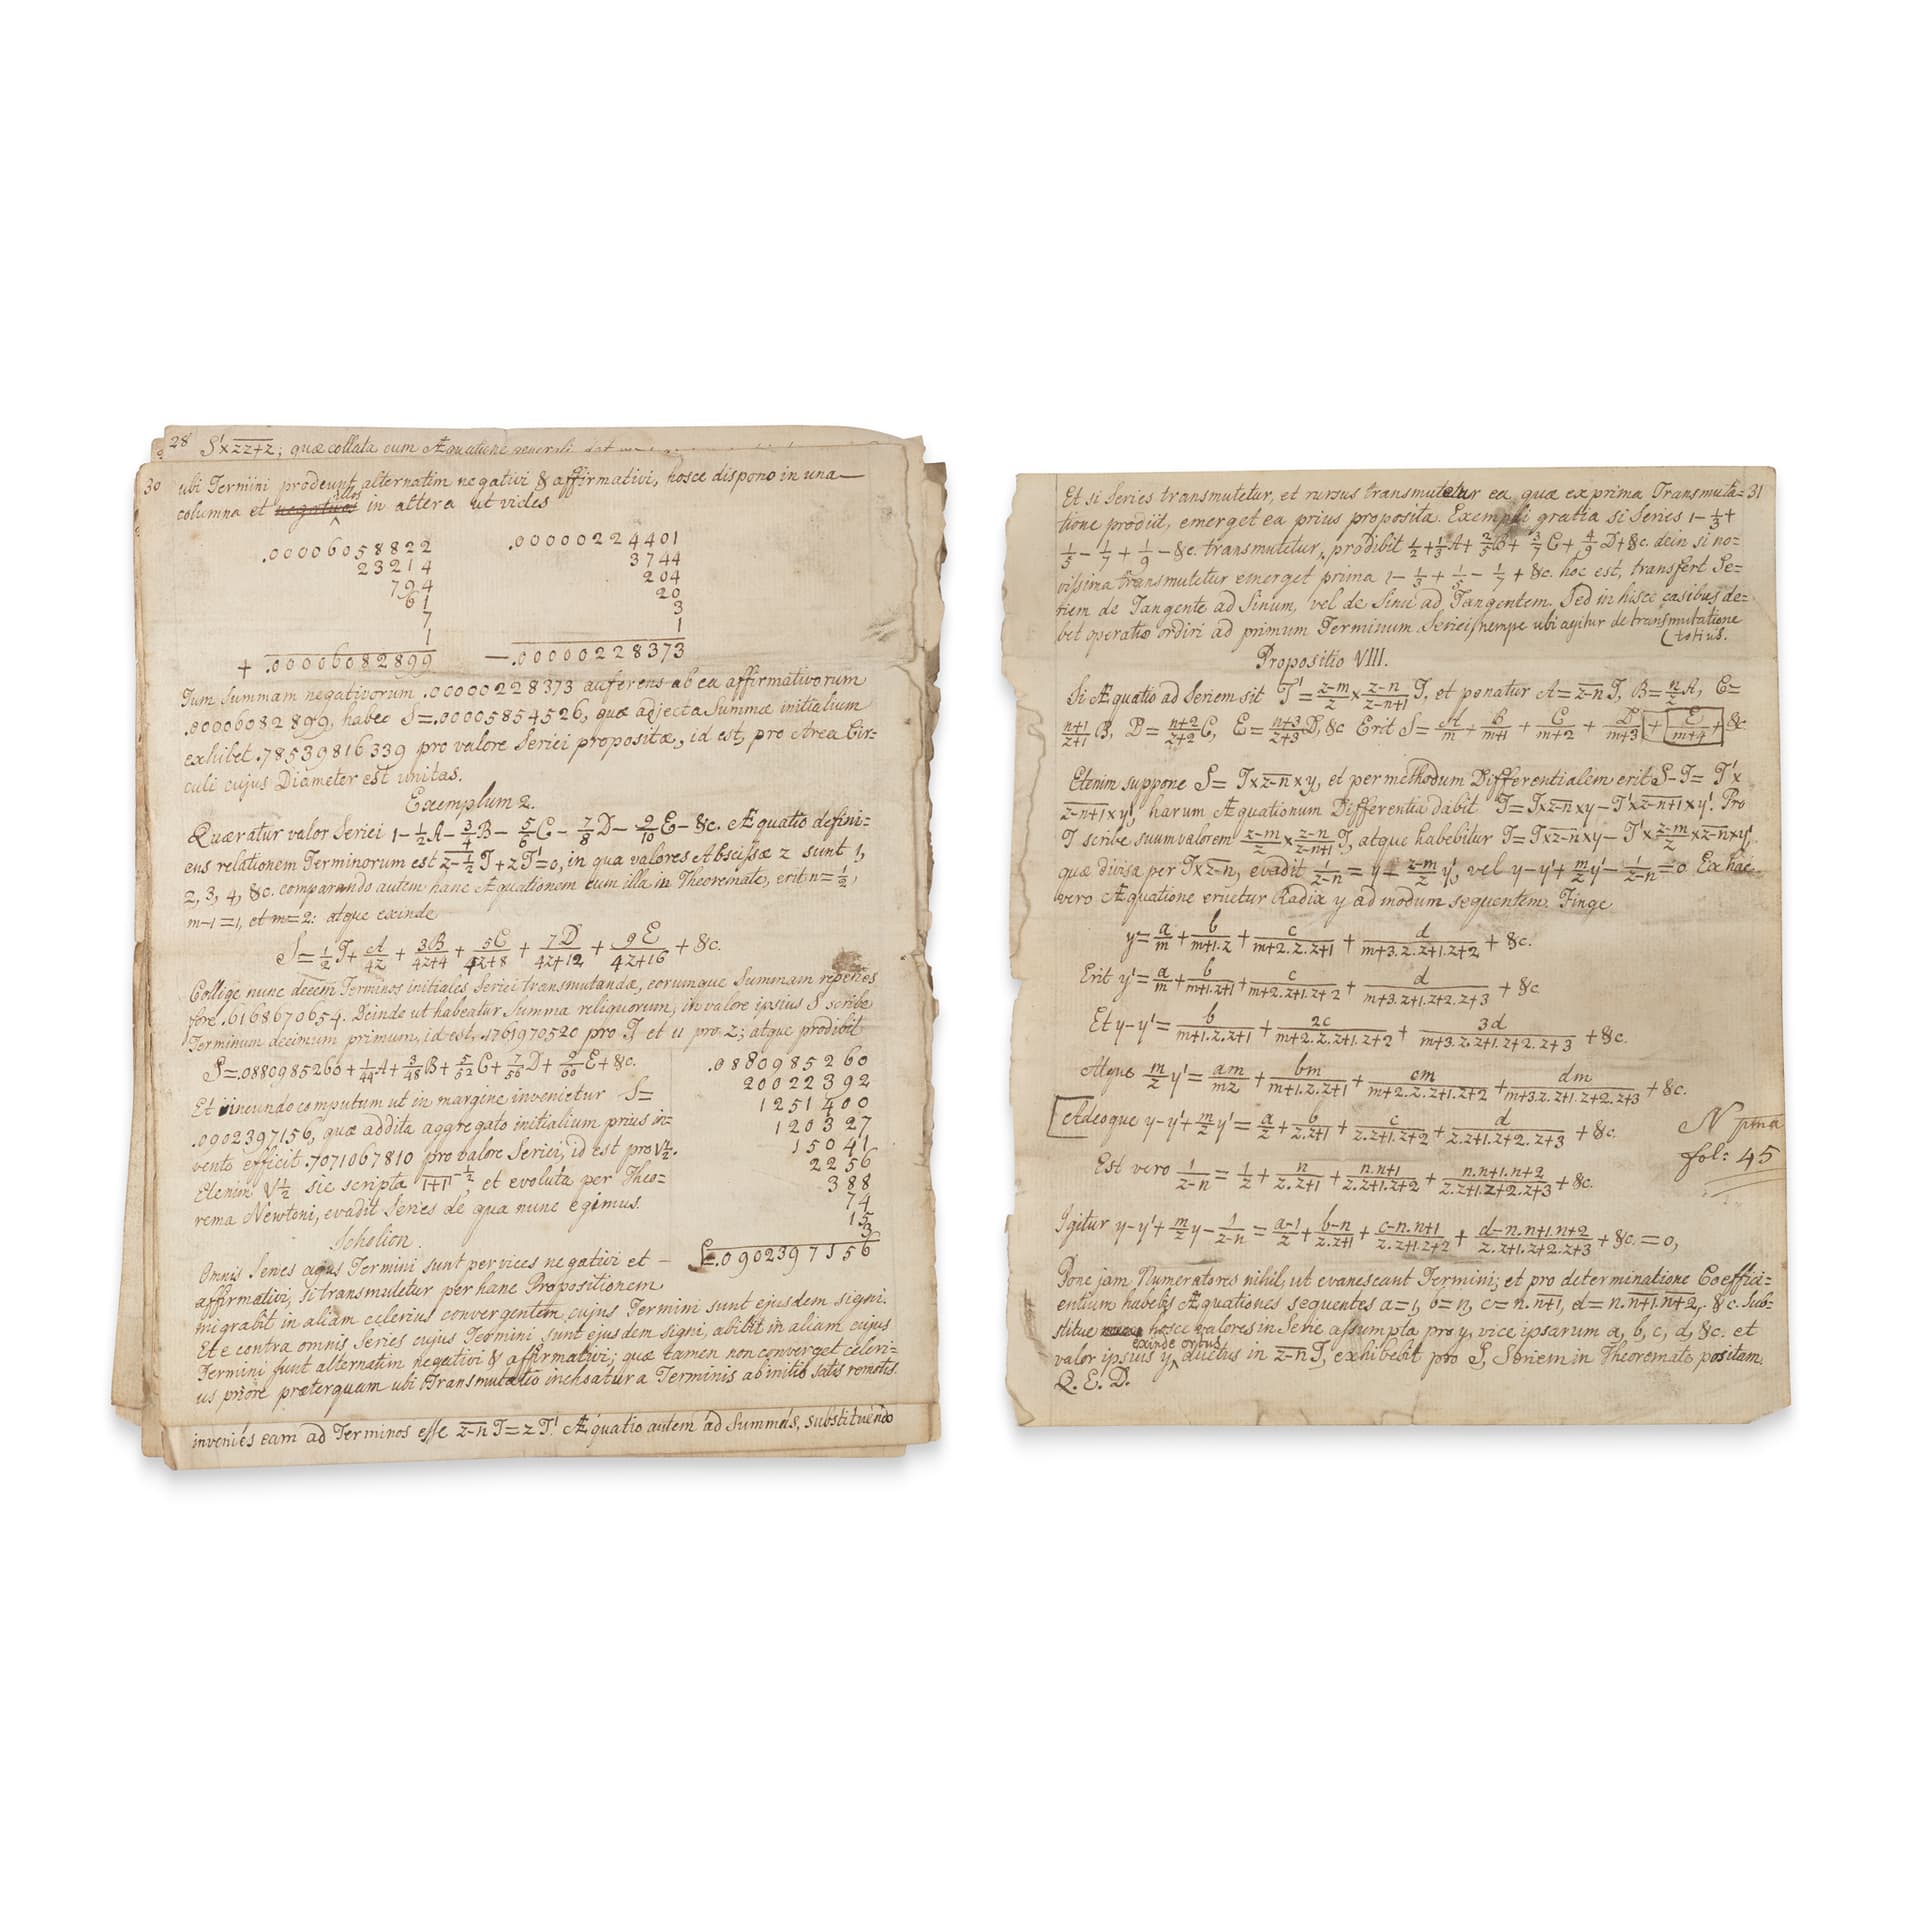 28 S'×zz+z; quæ collata cum Æquatione generali
30 ubi Termini prodeunt alternatim negativi & affirmativi, hosce dispono in una
illos
columna et negativos in altera ut vides
.00006058822 .00000224401
23214 3744
794 204
61 20
7 3
1 1
+ .00006082899 — .00000228373
Tum Summam negativorum .00000228373 auferens ab ea affirmativorum
.00006082899, habeo S=.00005854526, quæ adjecta Summæ initialium
exhibet .78539816339 pro valore Seriei propositæ, id est, pro Area Cir=
culi cujus Diameter est unitas.
Exemplum 2.
Quæratur valor Seriei 1 – 1/2 A – 3/4 B – 5/6 C – 7/8 D – 9/10 E – &c. Æquatio defini=
ens relationem Terminorum est z–1/2 T + z T'=0, in qua valores Abscissæ z sunt 1,
2, 3, 4, &c. comparando autem hanc Æquationem cum illa in Theoremate, erit n=1/2,
m–1=1, et m=2: atque exinde
S = 1/2 T + A/4z + 3B/4z+4 + 5C/4z+8 + 7D/4z+12 + 9E/4z+16 + &c.
Collige nunc decem Terminos initiales Seriei transmutandæ, eorumque Summam reperies
fore .6168670654. Deinde ut habeatur Summa reliquorum, in valore ipsius S scribe
Terminum decimum primum, id est, .1761970520 pro T, et 11 pro z; atque prodibit
S=.0880985260 + 1/44 A + 3/48 B + 5/52 C + 7/56 D + 9/60 E + &c.
.0880985260
20022392
1251400
120327
15041
2256
388
74
15
3
S=.0902397156
Et ineundo computum ut in margine invenietur S=
.0902397156, quæ addita aggregato initialium prius in=
vento efficit .7071067810 pro valore Seriei, id est pro √1/2.
Etenim √1/2 sic scripta 1+1^–1/2, et evoluta per Theo=
rema Newtoni, evadit Series de qua nunc egimus.
Scholion.
Omnis Series cujus Termini sunt per vices negativi et
affirmativi, si transmutetur per hanc Propositionem
migrabit in aliam celerius convergentem cujus Termini sunt ejusdem signi.
Et e contra omnis Series cujus Termini sunt ejusdem signi, abibit in aliam cujus
Termini sunt alternatim negativi & affirmativi; quæ tamen non converget celeri=
us priore præterquam ubi Transmutatio inchoatur a Terminis ab initio satis remotis.
invenies eam ad Terminos esse z–n T = z T'. Æquatio autem ad Summas, substituendo
Et si Series transmutetur, et rursus transmutetur ea quæ ex prima Transmuta= 31
tione prodiit, emerget ea prius proposita. Exempli gratia si Series 1 – 1/3 +
1/5 – 1/7 + 1/9 – &c. transmutetur, prodibit 1/2 + 1/3 A + 2/5 B + 3/7 C + 4/9 D + &c. dein si no=
vissima transmutetur emerget prima 1 – 1/3 + 1/5 – 1/7 + &c. hoc est, transfert Se=
riem de Tangente ad Sinum, vel de Sinu ad Tangentem. Sed in hisce casibus de=
bet operatio ordiri ad primum Terminum Seriei, nempe ubi agitur de transmutatione
totius.
Propositio VIII.
Si Æquatio ad Seriem sit T' = z–m/z × z–n/z–n+1 T, et ponatur A = z–n T, B = n/z A, C=
n+1/z+1 B, D = n+2/z+2 C, E = n+3/z+3 D, &c Erit S = A/m + B/m+1 + C/m+2 + D/m+3 + E/m+4 + &c
Etenim suppone S = T×z–n×y, et per methodum Differentialem erit S–T = T'×
z–n+1×y', harum Æquationum Differentia dabit T=T×z–n×y – T'×z–n+1×y'. Pro
T' scribe suum valorem z–m/z × z–n/z–n+1 T, atque habebitur T=T×z–n×y – T×z–m/z×z–n×y'
quæ divisa per T×z–n, evadit 1/z–n = y – z–m/z y', vel y–y'+ m/z y' – 1/z–n = 0 Ex hac
vero Æquatione eruetur Radix y ad modum sequentem. Finge
y = a/m + b/m+1.z + c/m+2.z.z+1 + d/m+3.z.z+1.z+2 + &c.
Erit y' = a/m + b/m+1.z+1 + c/m+2.z+1.z+2 + d/m+3.z+1.z+2.z+3 + &c
Et y–y' = b/m+1.z.z+1 + 2c/m+2.z.z+1.z+2 + 3d/m+3.z.z+1.z+2.z+3 + &c.
Atque m/z y' = am/mz + bm/m+1.z.z+1 + cm/m+2.z.z+1.z+2 + dm/m+3.z.z+1.z+2.z+3 + &c.
Adeoque y–y'+ m/z y' = a/z + b/z.z+1 + c/z.z+1.z+2 + d/z.z+1.z+2.z+3 + &c.
fol: 45
Est vero 1/z–n = 1/z + n/z.z+1 + n.n+1/z.z+1.z+2 + n.n+1.n+2/z.z+1.z+2.z+3 + &c.
Igitur y–y'+ m/z y – 1/z–n = a–1/z + b–n/z.z+1 + c–n.n+1/z.z+1.z+2 + d–n.n+1.n+2/z.z+1.z+2.z+3 + &c. = 0,
Pone jam Numeratores nihil, ut evanescant Termini; et pro determinatione Coeffici=
entium habebis Æquationes sequentes a=1, b=n, c=n.n+1, d=n.n+1.n+2, &c. Sub=
stitue hosce valores in Serie assumpta pro y, vice ipsarum a, b, c, d, &c. et
exinde ortus
valor ipsius y ductus in z–n T, exhibebit pro S, Seriem in Theoremate positam.
Q. E. D.